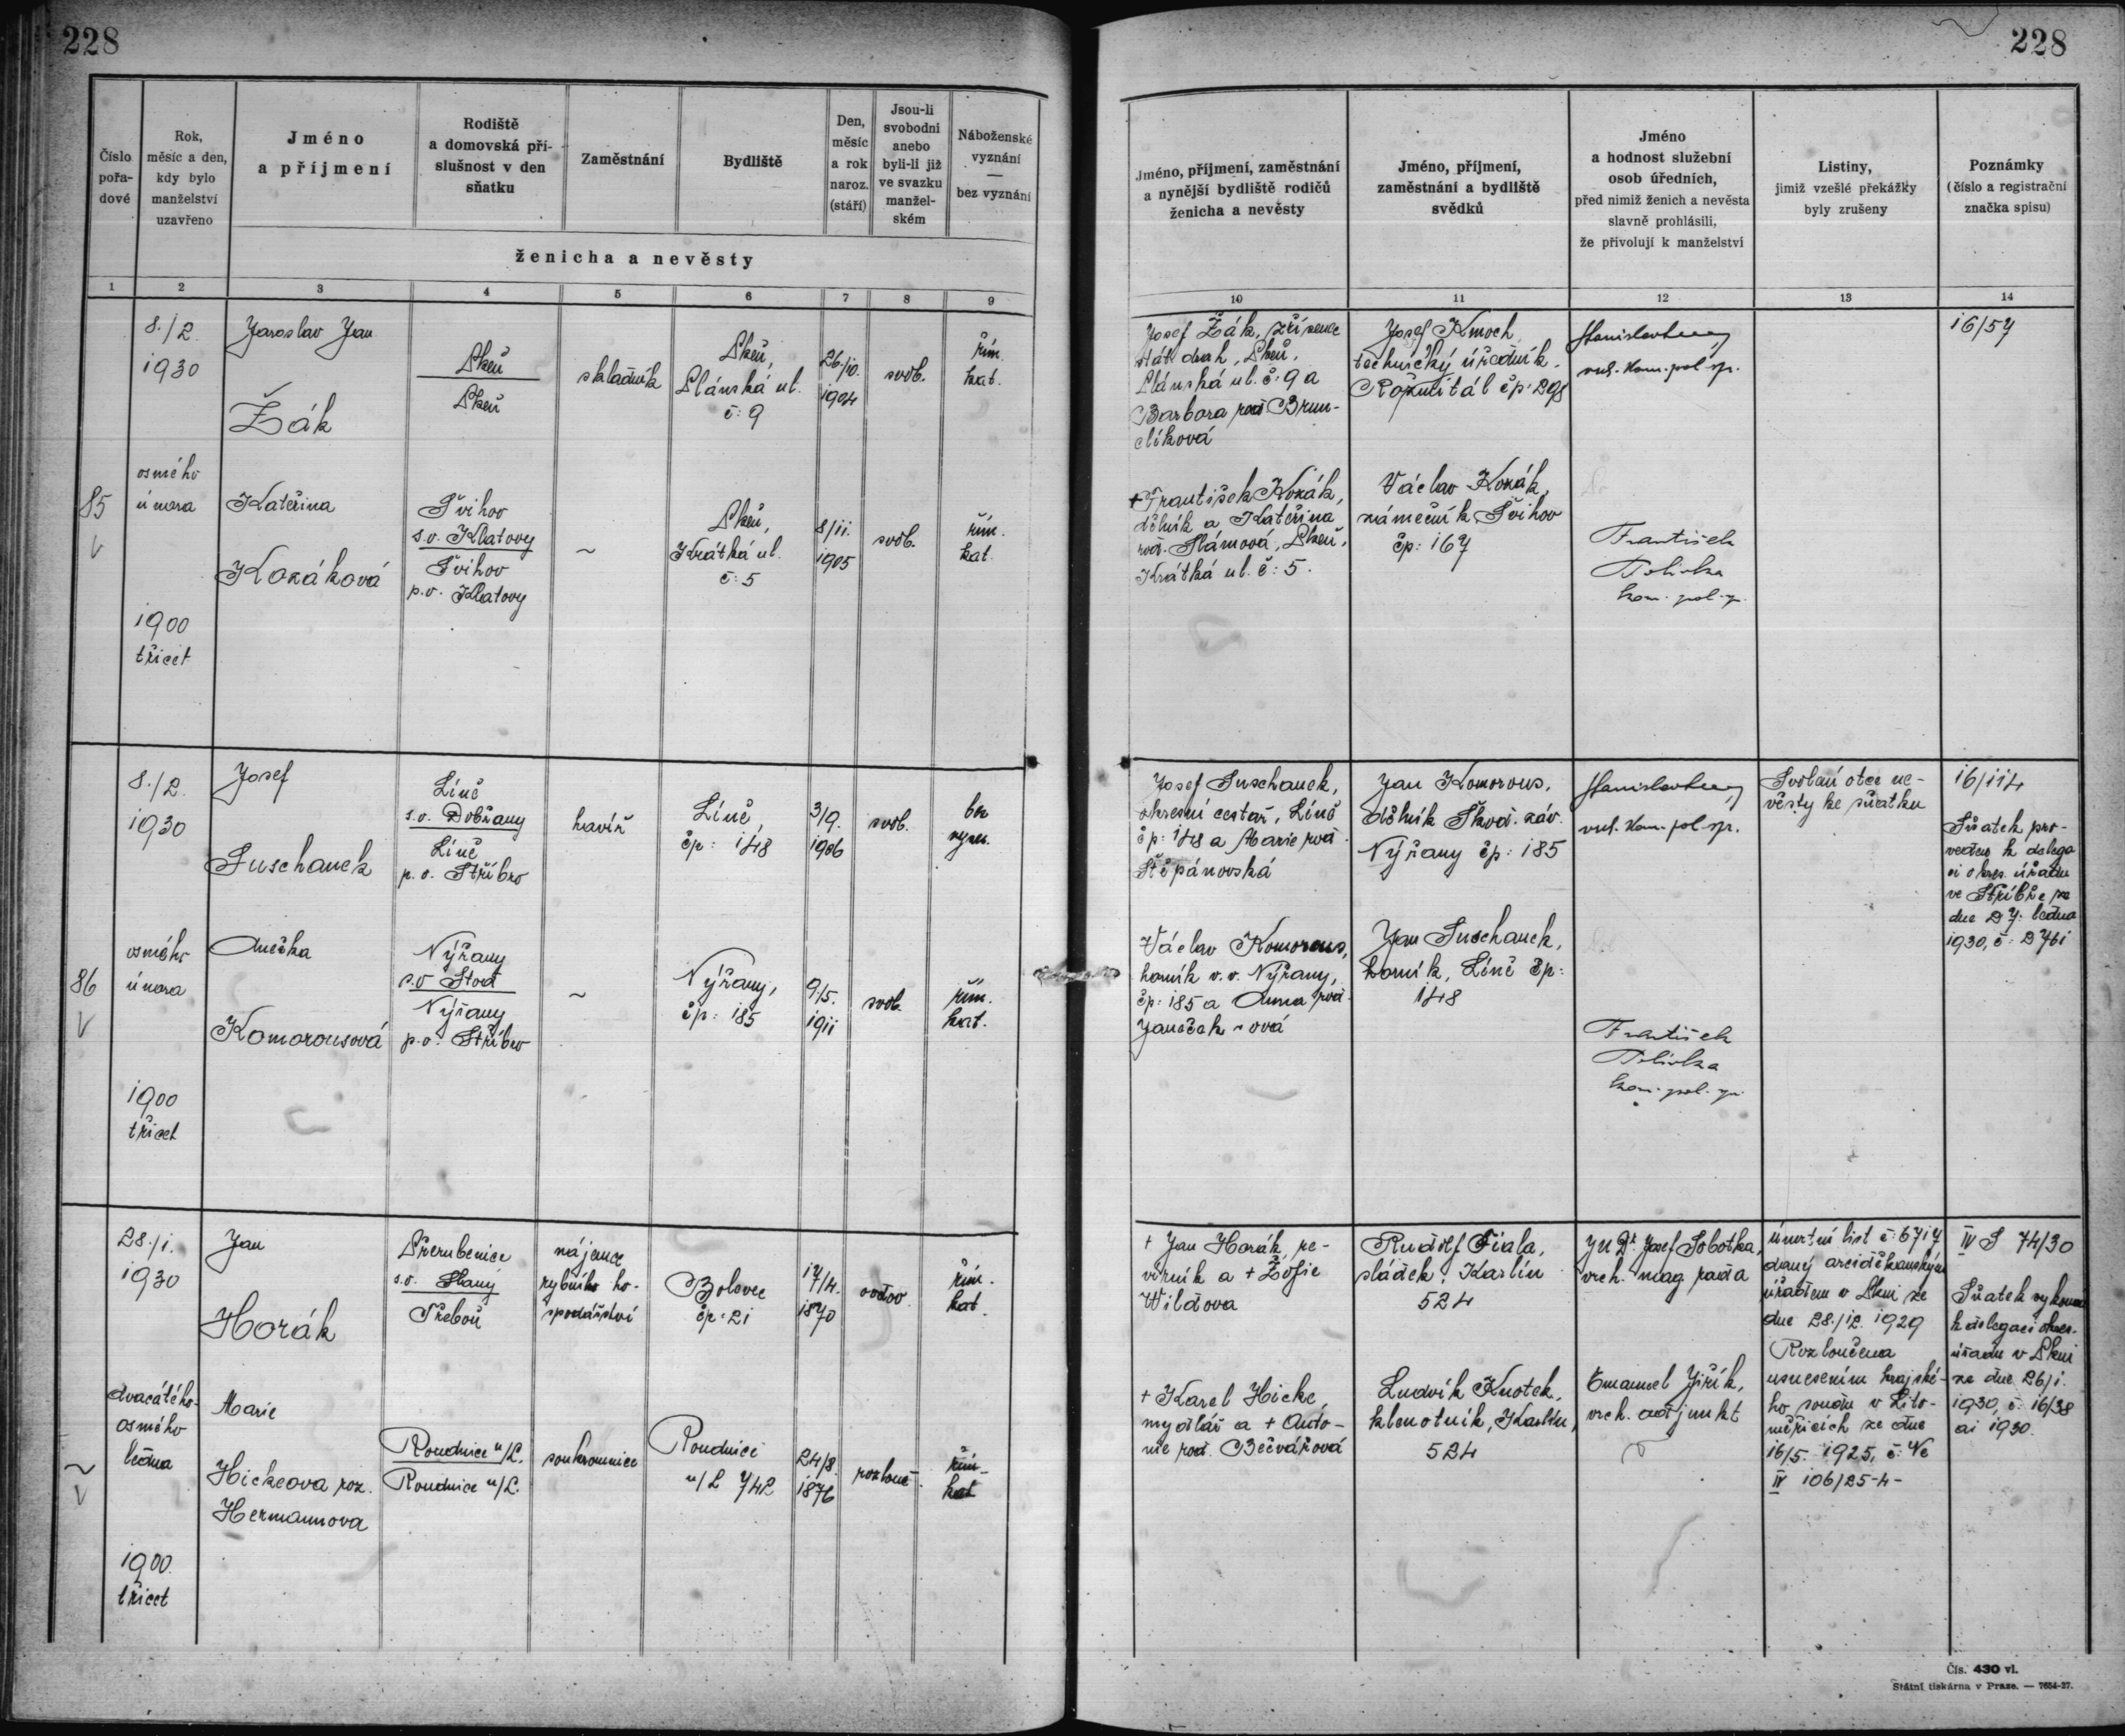 228
228
Číslo
pořa-
dové
Rok,
měsíc a den,
kdy bylo
manželství
uzavřeno
Jméno
a příjmení
Rodiště
a domovská pří-
slušnost v den
sňatku
Zaměstnání
Bydliště
Den,
měsíc
a rok
naroz.
(stáří)
Jsou-li
svobodni
anebo
byli-li již
ve svazku
manžel-
ském
Náboženské
vyznání
—
bez vyznání
ženicha a nevěsty
Jméno, příjmení, zaměstnání
a nynější bydliště rodičů
ženicha a nevěsty
Jméno, příjmení,
zaměstnání a bydliště
svědků
Jméno
a hodnost služební
osob úředních,
před nimiž ženich a nevěsta
slavně prohlásili,
že přivolují k manželství
Listiny,
jimiž vzešlé překážky
byly zrušeny
Poznámky
(číslo a registrační
značka spisu)
1 2 3 4 5 6 7 8 9
10 11 12 13 14
85
8./2.
1930
osmého
února
1900
třicet
Jaroslav Jan
Žák
skladník
č: 9
26/10.
1904
svob.
řím.
kat.
Josef Žák, zřízenec
stát. drah,
č: 9 a
Barbora roz. Brun-
clíková
Josef Kmoch,
technický úředník,
Rožmitál čp: 298
16/57
Kateřina
Kozáková
Švihov
s.o. Klatovy
Švihov
p.o. Klatovy
~
Krátká ul.
č: 5
8/11.
1905
svob.
řím.
kat.
+ František Kozák,
dělník a Kateřina
roz. Slámová,
Krátká ul. č: 5.
Václav Kozák,
námečník Švihov
čp: 167
František
Polívka
kom. pol. spr.
86
8./2.
1930
osmého
února
1900
třicet
Josef
Suschanek
Líně
s.o. Dobřany
Líně
p.o. Stříbro
havíř
Líně,
čp: 148
3/9.
1906
svob.
bez
vyzn.
Josef Suschanek,
okresní cestář, Líně
čp: 148 a Marie roz.
Štěpánovská
Jan Komorous,
dělník Škod. záv.
Nýřany čp: 185
Svolení otce ne-
věsty ke sňatku
16/114
Sňatek pro-
veden k delega-
ci okres. úřadu
ve Stříbře ze
dne 27. ledna
1930, č: 2761
Anežka
Komorousová
Nýřany
s.o. Stod
Nýřany
p.o. Stříbro
~
Nýřany,
čp: 185
9/5.
1911
svob.
řím.
kat.
Václav Komorous,
horník v.v. Nýřany,
čp: 185 a Anna roz.
Janečak-ová
Jan Suschanek,
horník, Líně čp:
148
František
Polívka
kom. pol. spr.
28./1.
1930
dvacátého
osmého
ledna
1900
třicet
Jan
Horák
s.o. Slaný
Třeboň
nájemce
rybního ho-
spodářství
Bolevec
čp: 21
17/4.
1870
vdov.
řím.
kat.
+ Jan Horák, re-
vírník a + Žofie
Wildova
Rudolf Fiala,
sládek, Karlín
524
JUDr. Josef Sobotka,
vrch. mag. rada
úmrtní list č: 6717
daný arciděkanským
úřadem v Plzni ze
dne 28./12. 1929
IV S 74/30
Sňatek vykonán
k delegaci okres.
úřadu v Plzni
ze dne 26/1.
1930, č. 16/38
ai 1930.
Marie
Hickeova roz.
Hermannova
Roudnice n/L.
Roudnice n/L.
soukromnice
Roudnice
n/L 742
24/8.
1876
rozlouč.
řím.
kat.
+ Karel Hicke,
mydlář a + Anto-
nie roz. Bečvářová
Ludvík Knotek,
klenotník, Karlín,
524
Emanuel Jiřík,
vrch. adjunkt
Rozloučena
usnesením krajské-
ho soudu v Lito-
měřicích ze dne
16/5. 1925, č: Nc
IV 106/25-4-
Čís. 430 vl.
Státní tiskárna v Praze. — 7654-27.